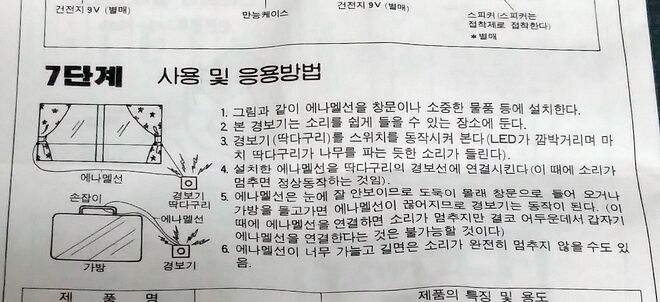 건전지 9V (별매)
만능케이스
건전지 9V (별매)
스피커 (스피커는
접착제로 접착한다)
*별매
7단계 사용 및 응용방법
에나멜선
경보기
딱다구리
손잡이
에나멜선
가방
경보기
1. 그림과 같이 에나멜선을 창문이나 소중한 물품 등에 설치한다.
2. 본 경보기는 소리를 쉽게 들을 수 있는 장소에 둔다.
3. 경보기 (딱다구리)를 스위치를 동작시켜 본다 (LED가 깜박거리며 마
치 딱다구리가 나무를 파는 듯한 소리가 들린다).
4. 설치한 에나멜선을 딱다구리의 경보선에 연결시킨다 (이 때에 소리가
멈추면 정상동작하는 것임).
5. 에나멜선은 눈에 잘 안보이므로 도둑이 몰래 창문으로 들어 오거나
가방을 들고가면 에나멜선이 끊어지므로 경보기는 동작이 된다. (이
때에 에나멜선을 연결하면 소리가 멈추지만 결코 어두운데서 갑자기
에나멜선을 연결한다는 것은 불가능할 것이다)
6. 에나멜선이 너무 가늘고 길면은 소리가 완전히 멈추지 않을 수도 있
음.
제 품 명
제품의 특징 및 용도